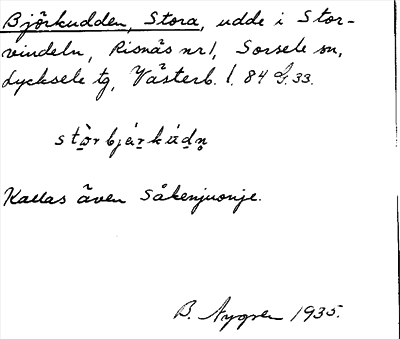 Björkudden, Stora, udde i Stor-
vindeln, Risnäs nr 1, Sorsele sn,
Lycksele tg, Västerb. l. 84 G. 33.
Kallas även Såkenjuonje.
B. Nygren 1935.